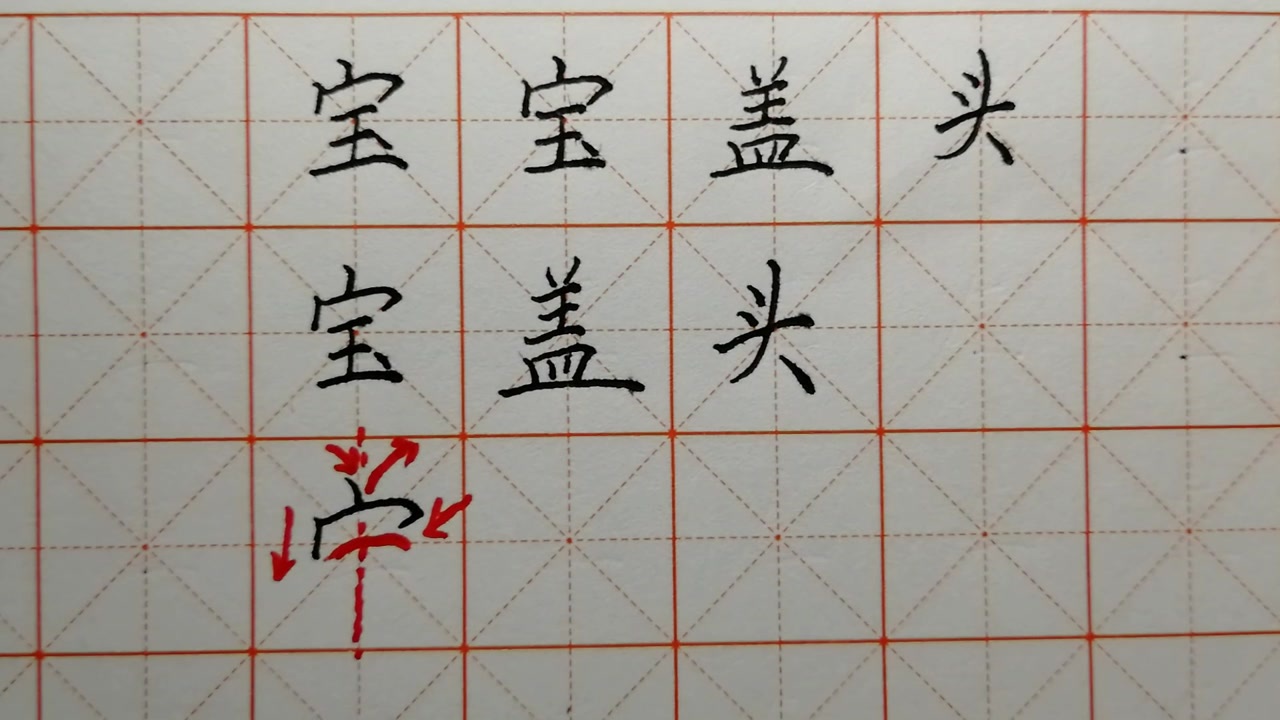 宝宝盖头
宝盖头
宀